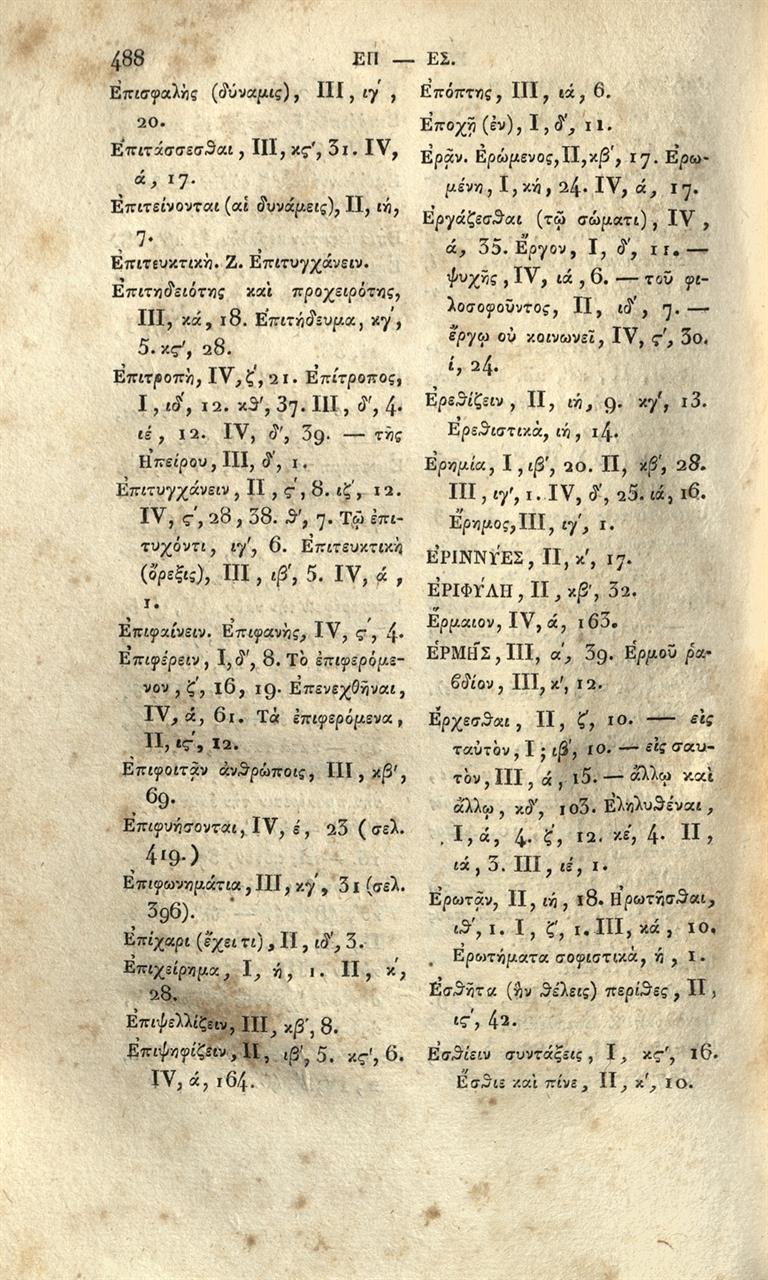 488 ΕΠ — ΕΣ.
Ἐπισφαλὴς (δύναμις), III, ιγ΄,
20.
Ἐπιτάσσεσθαι, III, κς΄, 31. IV,
ά, 17.
Ἐπιτείνονται (αἱ δυνάμεις), II, ιή,
7.
Ἐπιτευκτική. Ζ. Ἐπιτυγχάνειν.
Ἐπιτηδειότης καὶ προχειρότης,
III, κά, 18. Ἐπιτήδευμα, κγ΄,
5. κς΄, 28.
Ἐπιτροπὴ, IV, ζ΄, 21. Ἐπίτροπος,
I, ιδ΄, 12. κθ΄, 37. III, δ΄, 4.
ιέ, 12. IV, δ΄, 39. — τῆς
Ἠπείρου, III, δ΄, 1.
Ἐπιτυγχάνειν, II, ς΄, 8. ιζ΄, 12.
IV, ς΄, 28, 38. θ΄, 7. Τῷ ἐπι-
τυχόντι, ιγ΄, 6. Ἐπιτευκτικὴ
(ὄρεξις), III, ιβ΄, 5. IV, ά,
1.
Ἐπιφαίνειν. Ἐπιφανὴς, IV, ς΄, 4.
Ἐπιφέρειν, I, δ΄, 8. Τὸ ἐπιφερόμε-
νον, ζ΄, 16, 19. Ἐπενεχθῆναι,
IV, ά, 61. Τὰ ἐπιφερόμενα,
II, ις΄, 12.
Ἐπιφοιτᾷν ἀνθρώποις, III, κβ΄,
69.
Ἐπιφυήσονται, IV, έ, 23 (σελ.
419.)
Ἐπιφωνημάτια, III, κγ΄, 31 (σελ.
396).
Ἐπίχαρι (ἔχει τι), II, ιδ΄, 3.
Ἐπιχείρημα, I, ή, 1. II, κ΄,
28.
Ἐπιψελλίζειν, III, κβ΄, 8.
Ἐπιψηφίζειν, II, ιβ΄, 5. κς΄, 6.
IV, ά, 164.
Ἐπόπτης, III, ιά, 6.
Ἐποχῇ (ἐν), I, δ΄, 11.
Ἐρᾷν. Ἐρώμενος, II, κβ΄, 17. Ἐρω-
μένη, I, κή, 24. IV, ά, 17.
Ἐργάζεσθαι (τῷ σώματι), IV,
ά, 35. Ἔργον, I, δ΄, 11. —
ψυχῆς, IV, ιά, 6. — τοῦ φι-
λοσοφοῦντος, II, ιδ΄, 7. —
ἔργῳ οὐ κοινωνεῖ, IV, ς΄, 30.
ί, 24.
Ἐρεθίζειν, II, ιή, 9. κγ΄, 13.
Ἐρεθιστικὰ, ιή, 14.
Ἐρημία, I, ιβ΄, 20. II, κβ΄, 28.
III, ιγ΄, 1. IV, δ΄, 25. ιά, 16.
Ἔρημος, III, ιγ΄, 1.
ἘΡΙΝΝΎΕΣ, II, κ΄, 17.
ἘΡΙΦΎΛΗ, II, κβ΄, 32.
Ἕρμαιον, IV, ά, 163.
ἙΡΜΗ͂Σ, III, α΄, 39. Ἑρμοῦ ῥα-
βδίον, III, κ΄, 12.
Ἔρχεσθαι, II, ζ΄, 10. — εἰς
ταὐτὸν, I; ιβ΄, 10. — εἰς σαυ-
τὸν, III, ά, 15. — ἄλλῳ καὶ
ἄλλῳ, κδ΄, 103. Ἐληλυθέναι,
I, ά, 4. ζ΄, 12. κέ, 4. II,
ιά, 3. III, ιέ, 1.
Ἐρωτᾷν, II, ιή, 18. Ἠρωτῆσθαι,
ιθ΄, 1. I, ζ΄, 1. III, κά, 10.
Ἐρωτήματα σοφιστικὰ, ή, 1.
Ἐσθῆτα (ἣν θέλεις) περίθες, II,
ις΄, 42.
Ἐσθίειν συντάξεις, I, κς΄, 16.
Ἔσθιε καὶ πίνε, II, κ΄, 10.